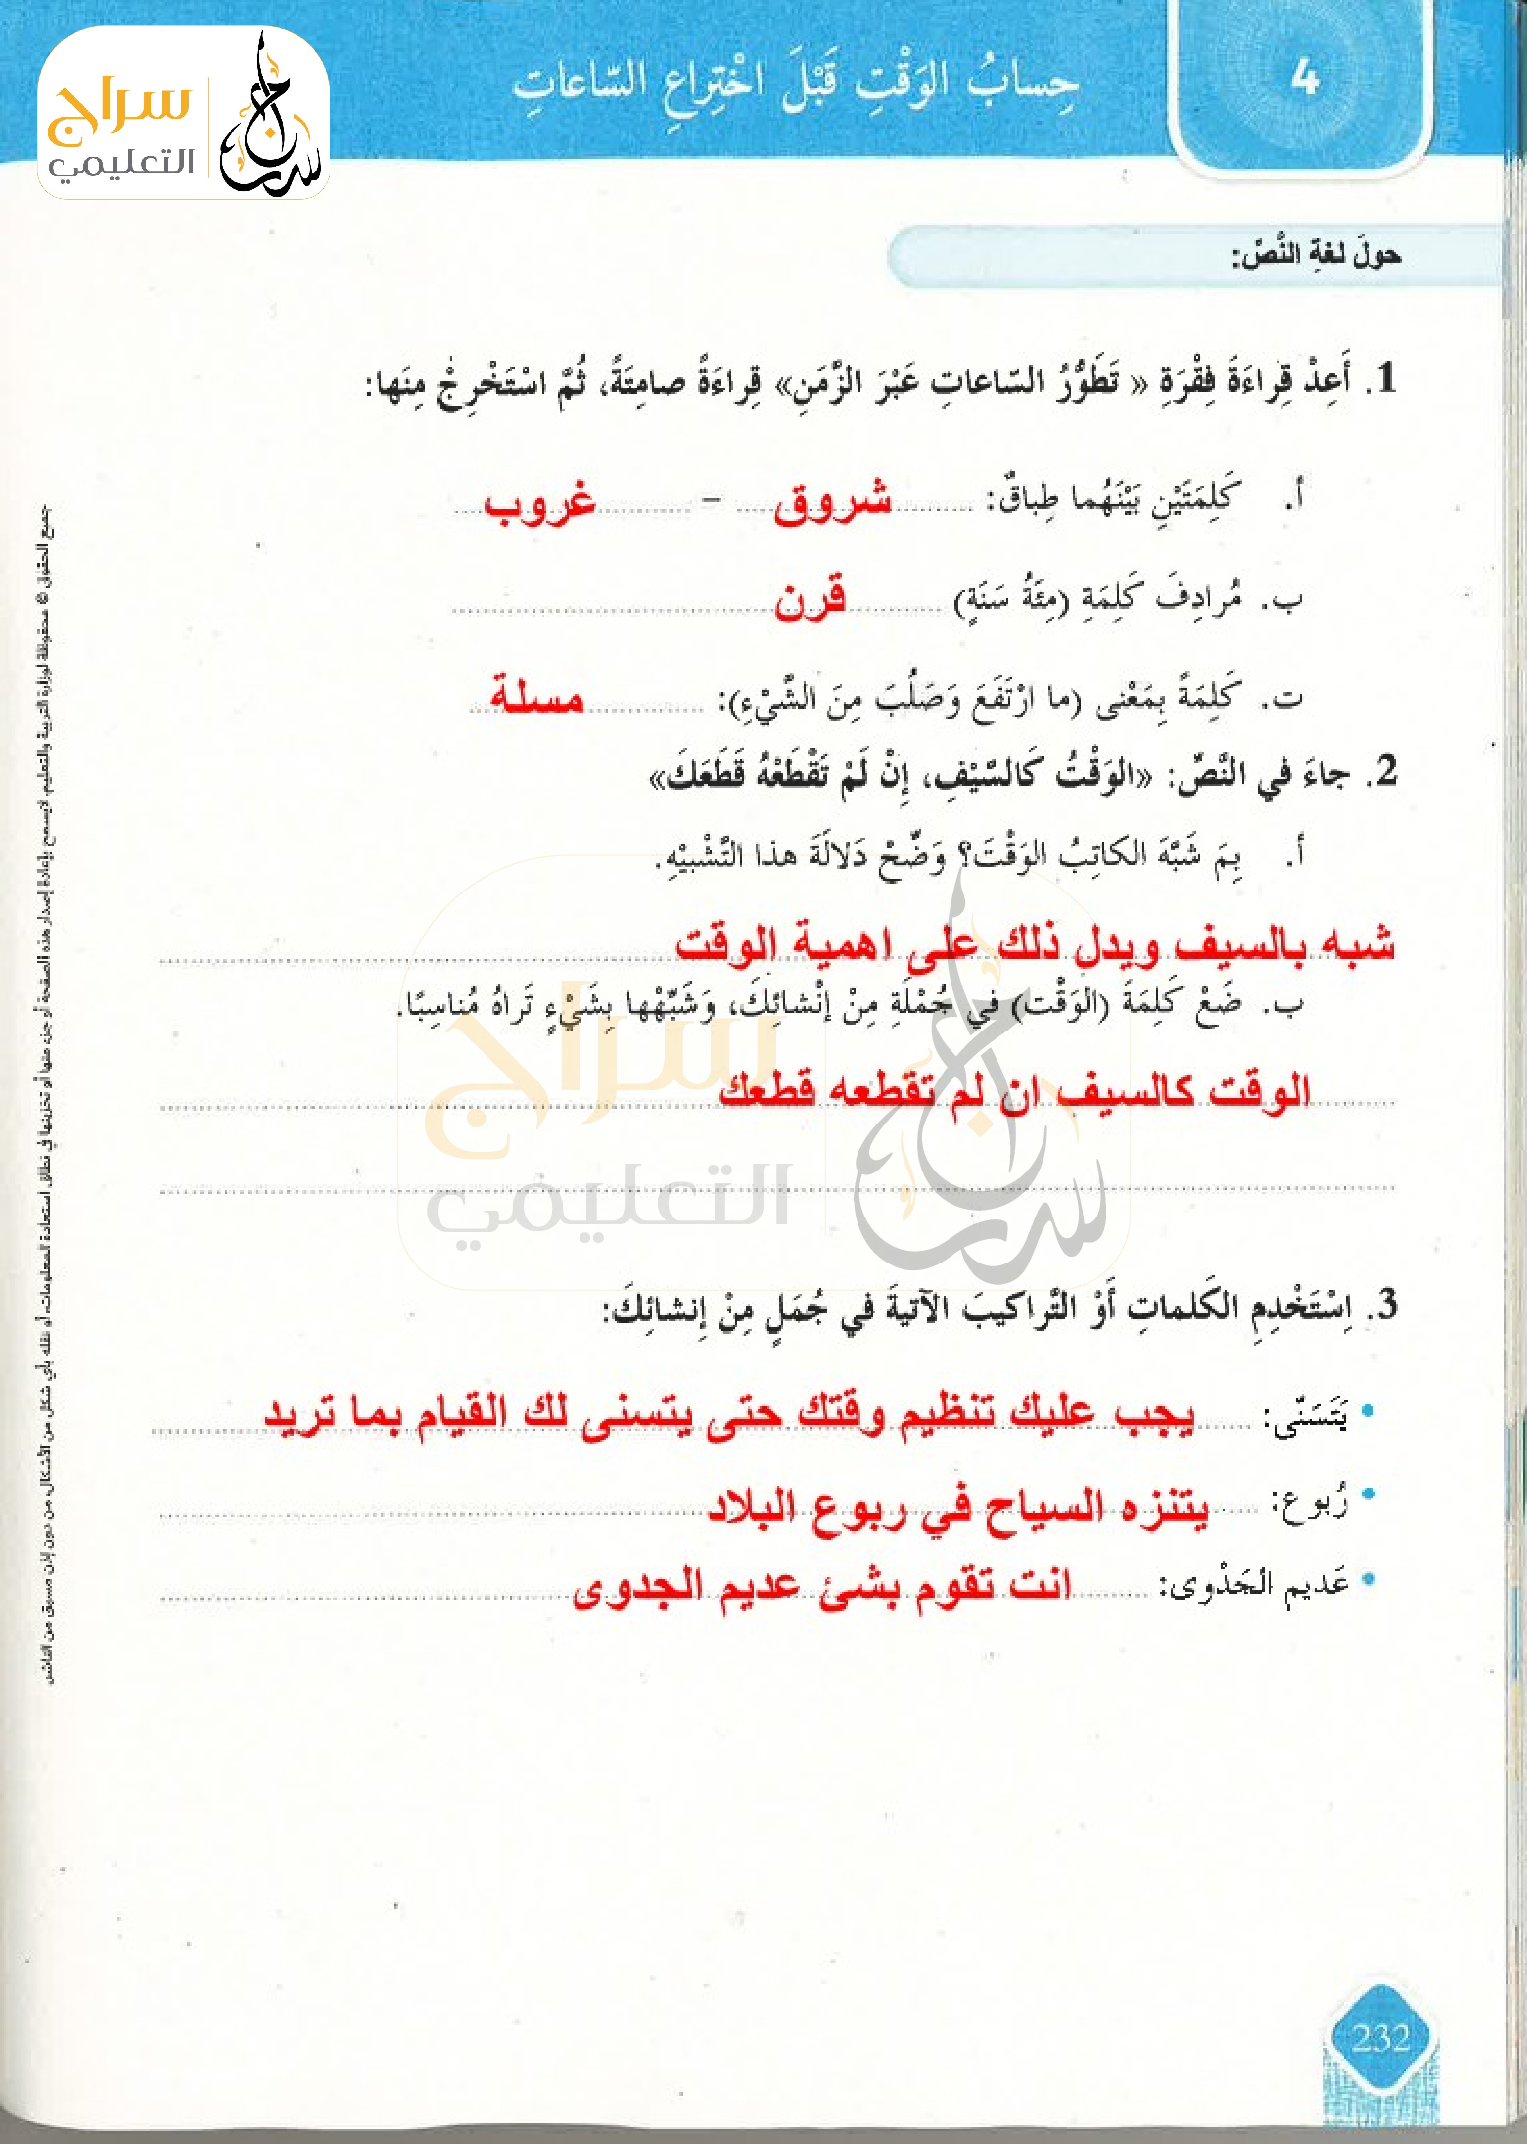 سراج
التعليمي
4
حِسابُ الوَقْتِ قَبْلَ اخْتِراعِ السّاعاتِ
حولَ لغةِ النَّصِّ:
1. أَعِدْ قِراءَةَ فِقْرَةِ « تَطَوُّرُ السّاعاتِ عَبْرَ الزَّمَنِ» قِراءَةً صامِتَةً، ثُمَّ اسْتَخْرِجْ مِنَها:
أ. كَلِمَتَيْنِ بَيْنَهُما طِباقٌ: شروق - غروب
ب. مُرادِفَ كَلِمَةِ (مِئَةُ سَنَةٍ) قرن
ت. كَلِمَةً بِمَعْنى (ما ارْتَفَعَ وَصَلُبَ مِنَ الشَّيْءِ): مسلة
2. جاءَ في النَّصِّ: «الوَقْتُ كَالسَّيْفِ، إِنْ لَمْ تَقْطَعْهُ قَطَعَكَ»
أ. بِمَ شَبَّهَ الكاتِبُ الوَقْتَ؟ وَضِّحْ دَلالَةَ هذا التَّشْبيْهِ.
شبه بالسيف ويدل ذلك على اهمية الوقت
ب. ضَعْ كَلِمَةَ (الوَقْت) في جُمْلَةٍ مِنْ إنْشائِكَ، وَشَبِّهْها بِشَيْءٍ تَراهُ مُناسِبًا.
الوقت كالسيف ان لم تقطعه قطعك
سراج
التعليمي
3. اِسْتَخْدِمِ الكَلماتِ أَوْ التَّراكيبَ الآتيةَ في جُمَلٍ مِنْ إِنشائِكَ:
• يَتَسَنّى: يجب عليك تنظيم وقتك حتى يتسنى لك القيام بما تريد
• رُبوع: يتنزه السياح في ربوع البلاد
• عَديم الجَدْوى: انت تقوم بشئ عديم الجدوى
جميع الحقوق © محفوظة لوزارة التربية والتعليم. لايسمح بإعادة إصدار هذه الصفحة أو جزء منها أو تخزينها في نطاق استعادة المعلومات، أو نقله بأي شكل من الأشكال، من دون إذن مسبق من الناشر.
232